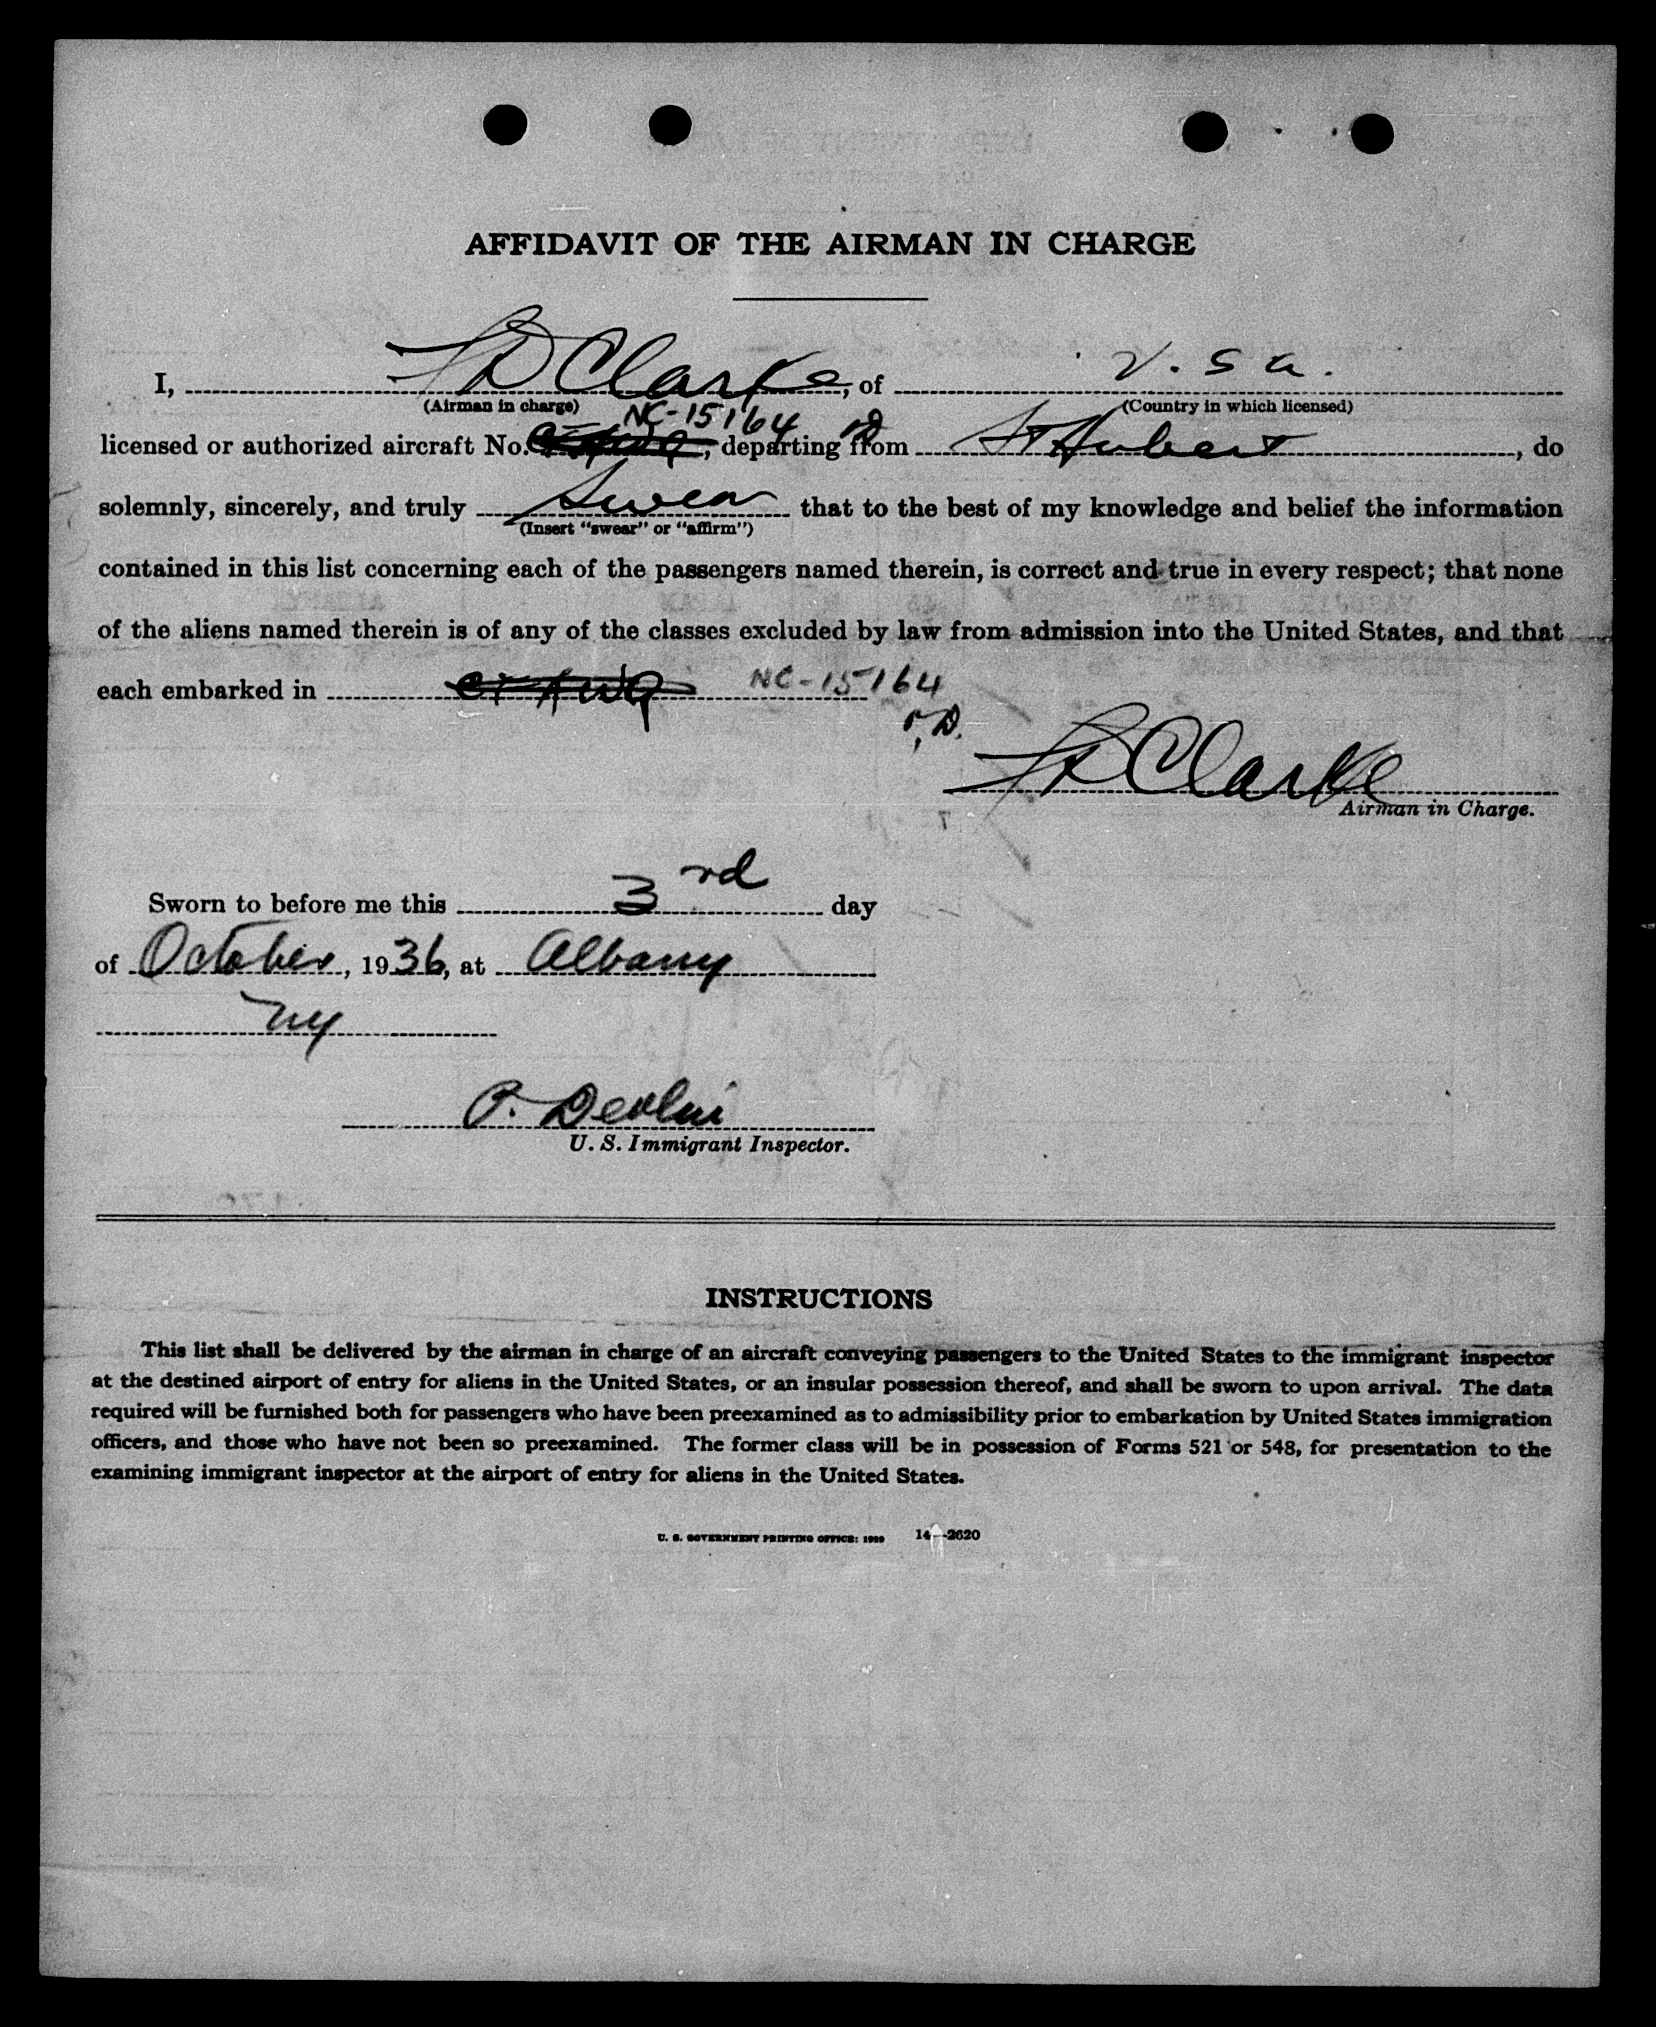 AFFIDAVIT OF THE AIRMAN IN CHARGE
I, D Clarke, of U.S.A.
(Airman in charge) (Country in which licensed)
NC-15164
licensed or authorized aircraft No. , departing from St Hubert, do
solemnly, sincerely, and truly Swear that to the best of my knowledge and belief the information
(Insert "swear" or "affirm")
contained in this list concerning each of the passengers named therein, is correct and true in every respect; that none
of the aliens named therein is of any of the classes excluded by law from admission into the United States, and that
each embarked in NC-15164
D Clarke
Airman in Charge.
Sworn to before me this 3rd day
of October, 1936, at Albany
NY
P. Devlin
U. S. Immigrant Inspector.
INSTRUCTIONS
This list shall be delivered by the airman in charge of an aircraft conveying passengers to the United States to the immigrant inspector
at the destined airport of entry for aliens in the United States, or an insular possession thereof, and shall be sworn to upon arrival. The data
required will be furnished both for passengers who have been preexamined as to admissibility prior to embarkation by United States immigration
officers, and those who have not been so preexamined. The former class will be in possession of Forms 521 or 548, for presentation to the
examining immigrant inspector at the airport of entry for aliens in the United States.
U. S. GOVERNMENT PRINTING OFFICE: 14—2620